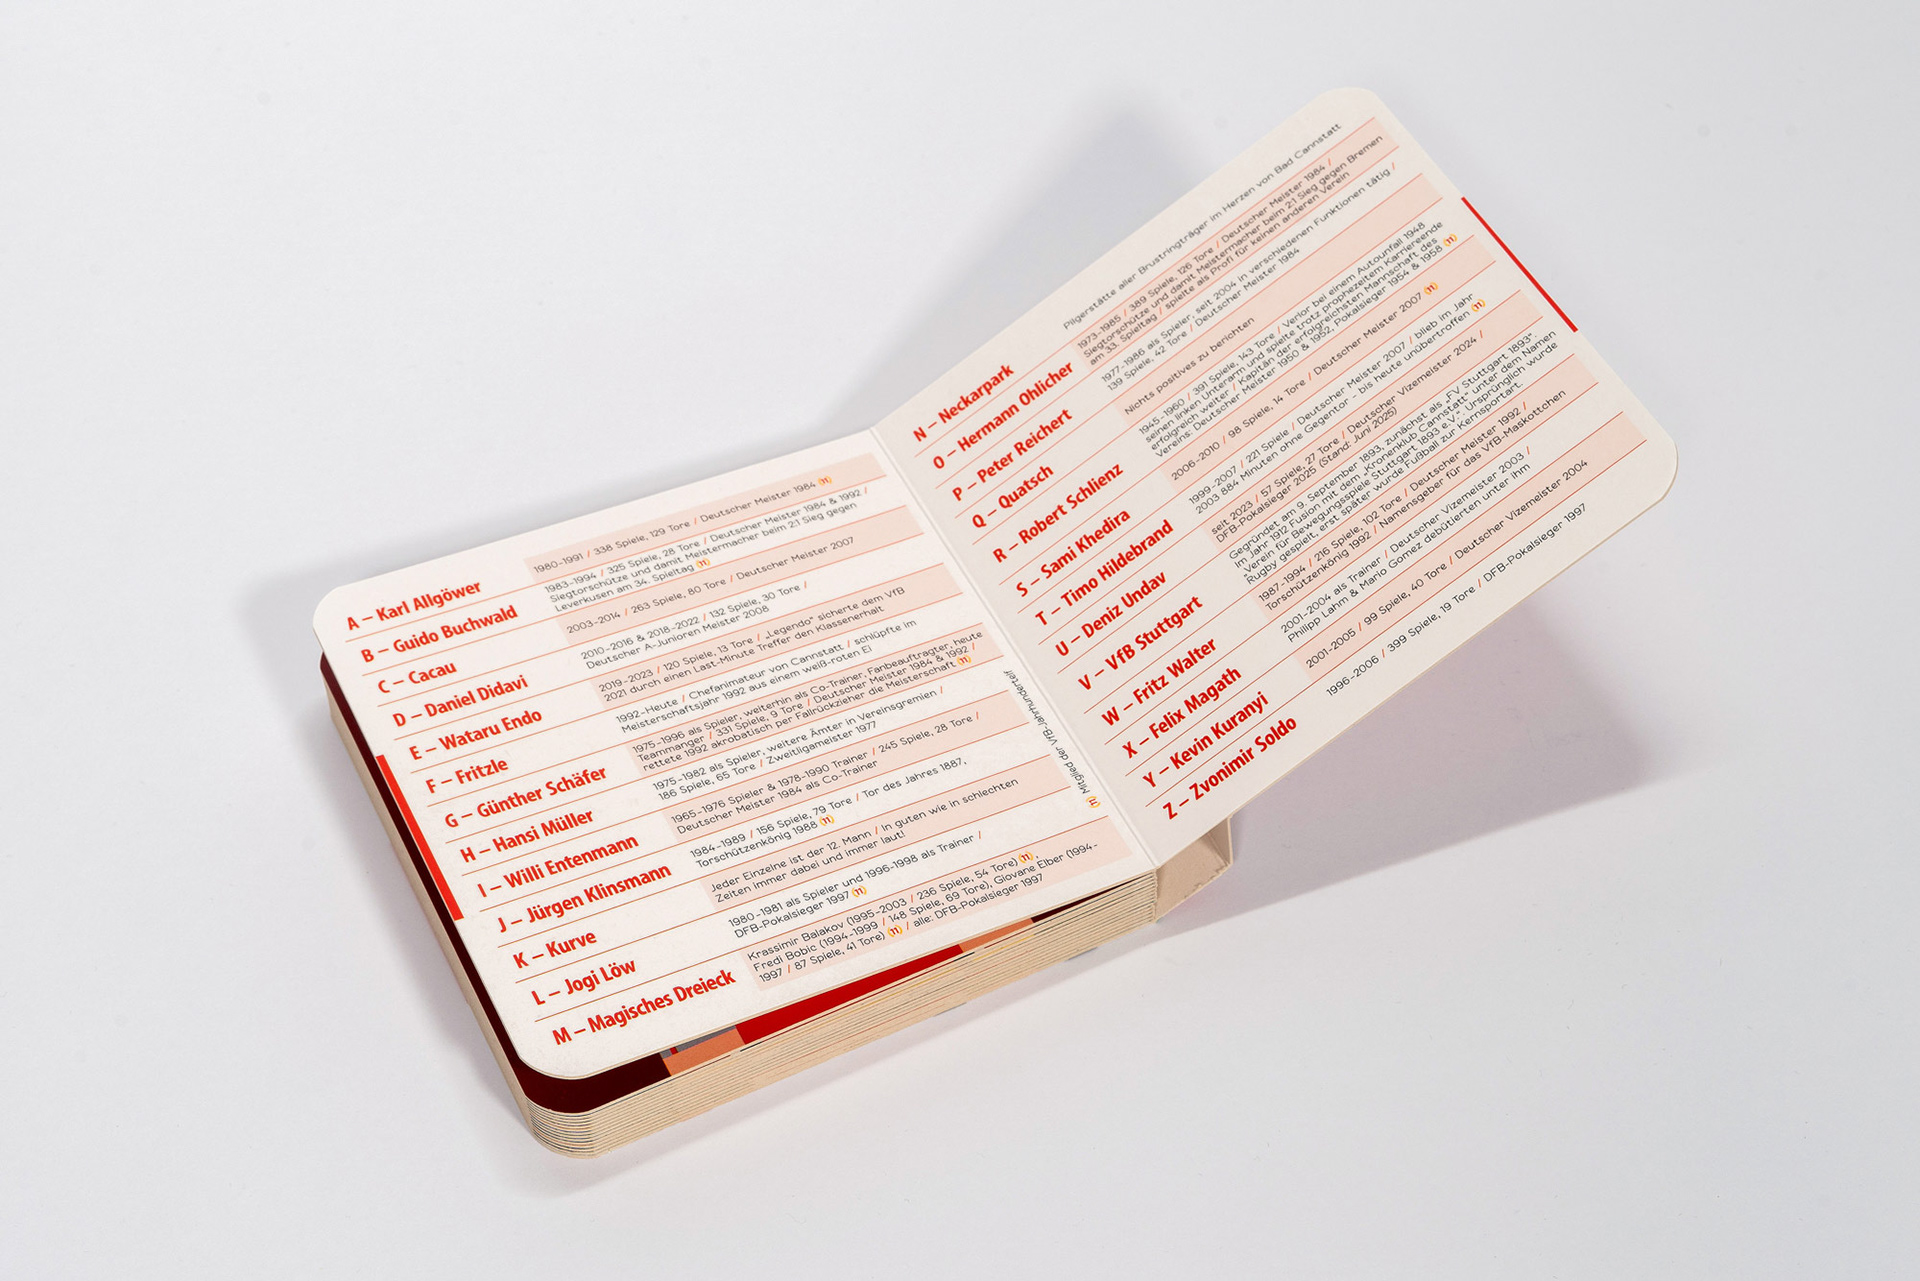 A – Karl Allgöwer
1980–1991 / 338 Spiele, 129 Tore / Deutscher Meister 1984 (11)
B – Guido Buchwald
1983–1994 / 325 Spiele, 28 Tore / Deutscher Meister 1984 & 1992 /
Siegtorschütze und damit Meistermacher beim 2:1 Sieg gegen
Leverkusen am 34. Spieltag (11)
C – Cacau
2003–2014 / 263 Spiele, 80 Tore / Deutscher Meister 2007
D – Daniel Didavi
2010–2016 & 2018–2022 / 132 Spiele, 30 Tore /
Deutscher A-Junioren Meister 2008
E – Wataru Endo
2019–2023 / 120 Spiele, 13 Tore / „Legendo“ sicherte dem VfB
2021 durch einen Last-Minute Treffer den Klassenerhalt
F – Fritzle
1992–Heute / Chefanimateur von Cannstatt / schlüpfte im
Meisterschaftsjahr 1992 aus einem weiß-roten Ei
G – Günther Schäfer
1975–1996 als Spieler, weiterhin als Co-Trainer, Fanbeauftragter, heute
Teammanger / 331 Spiele, 9 Tore / Deutscher Meister 1984 & 1992 /
rettete 1992 akrobatisch per Fallrückzieher die Meisterschaft (11)
H – Hansi Müller
1975–1982 als Spieler, weitere Ämter in Vereinsgremien /
186 Spiele, 65 Tore / Zweitligameister 1977
I – Willi Entenmann
1965–1976 Spieler & 1978–1990 Trainer / 245 Spiele, 28 Tore /
Deutscher Meister 1984 als Co-Trainer
J – Jürgen Klinsmann
1984–1989 / 156 Spiele, 79 Tore / Tor des Jahres 1887,
Torschützenkönig 1988 (11)
K – Kurve
Jeder Einzelne ist der 12. Mann / In guten wie in schlechten
Zeiten immer dabei und immer laut!
L – Jogi Löw
1980–1981 als Spieler und 1996–1998 als Trainer /
DFB-Pokalsieger 1997 (11)
M – Magisches Dreieck
Krassimir Balakov (1995–2003 / 236 Spiele, 54 Tore) (11),
Fredi Bobic (1994–1999 / 148 Spiele, 69 Tore), Giovane Elber (1994–
1997 / 87 Spiele, 41 Tore) (11) / alle: DFB-Pokalsieger 1997
(11) Mitglied der VfB-Jahrhundertelf
N – Neckarpark
Pilgerstätte aller Brustringträger im Herzen von Bad Cannstatt
O – Hermann Ohlicher
1973–1985 / 389 Spiele, 126 Tore / Deutscher Meister 1984 /
Siegtorschütze und damit Meistermacher beim 2:1 Sieg gegen Bremen
am 33. Spieltag / spielte als Profi für keinen anderen Verein
P – Peter Reichert
1977–1986 als Spieler, seit 2004 in verschiedenen Funktionen tätig /
139 Spiele, 42 Tore / Deutscher Meister 1984
Q – Quatsch
Nichts positives zu berichten
R – Robert Schlienz
1945–1960 / 391 Spiele, 143 Tore / Verlor bei einem Autounfall 1948
seinen linken Unterarm und spielte trotz prophezeitem Karriereende
erfolgreich weiter / Kapitän der erfolgreichsten Mannschaft des
Vereins: Deutscher Meister 1950 & 1952, Pokalsieger 1954 & 1958 (11)
S – Sami Khedira
2006–2010 / 98 Spiele, 14 Tore / Deutscher Meister 2007 (11)
T – Timo Hildebrand
1999–2007 / 221 Spiele / Deutscher Meister 2007 / blieb im Jahr
2003 884 Minuten ohne Gegentor – bis heute unübertroffen (11)
U – Deniz Undav
seit 2023 / 57 Spiele, 27 Tore / Deutscher Vizemeister 2024 /
DFB-Pokalsieger 2025 (Stand: Juni 2025)
V – VfB Stuttgart
Gegründet am 9. September 1893, zunächst als „FV Stuttgart 1893“.
Im Jahr 1912 Fusion mit dem „Kronenklub Cannstatt“ unter dem Namen
Verein für Bewegungsspiele Stuttgart 1893 e.V.“. Ursprünglich wurde
Rugby gespielt, erst später wurde Fußball zur Kernsportart.
W – Fritz Walter
1987–1994 / 216 Spiele, 102 Tore / Deutscher Meister 1992 /
Torschützenkönig 1992 / Namensgeber für das VfB-Maskottchen
X – Felix Magath
2001–2004 als Trainer / Deutscher Vizemeister 2003 /
Philipp Lahm & Mario Gomez debütierten unter ihm
Y – Kevin Kuranyi
2001–2005 / 99 Spiele, 40 Tore / Deutscher Vizemeister 2004
Z – Zvonimir Soldo
1996–2006 / 399 Spiele, 19 Tore / DFB-Pokalsieger 1997